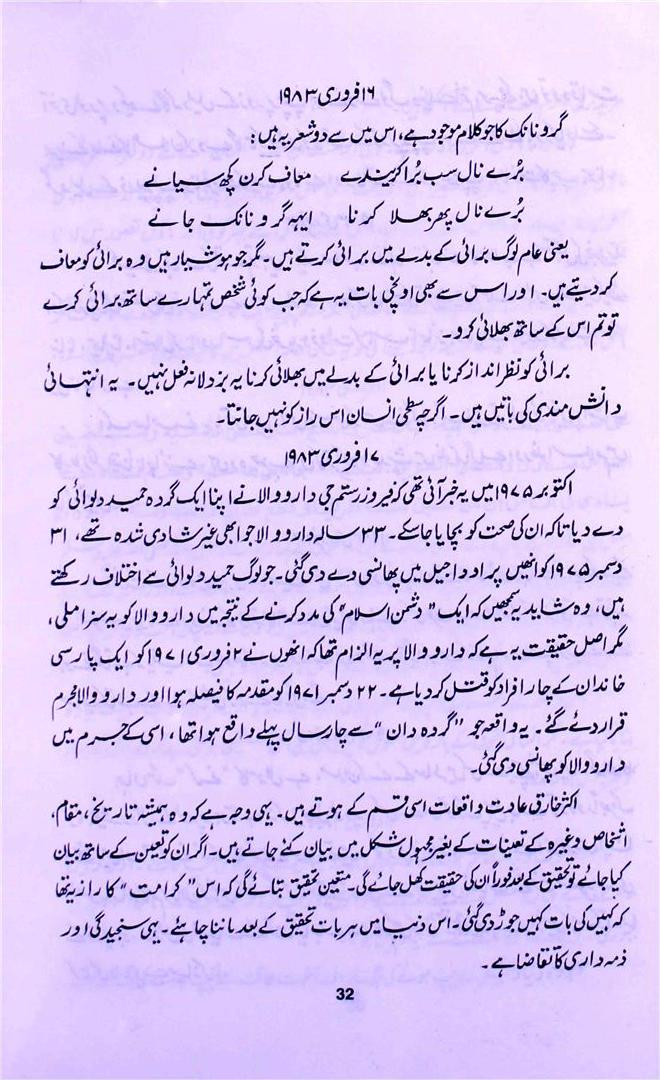 ۱۶ فروری ۱۹۸۳
گرو نانک کا جو کلام موجود ہے، اس میں سے دو شعر یہ ہیں:
بُرے نال سب بُرا کریندے معاف کرن کچھ سیانے
بُرے نال پھر بھلا کرنا ایہہ گرو نانک جانے
یعنی عام لوگ برائی کے بدلے میں برائی کرتے ہیں۔ مگر جو ہوشیار ہیں وہ برائی کو معاف
کر دیتے ہیں۔ اور اس سے بھی اونچی بات یہ ہے کہ جب کوئی شخص تمہارے ساتھ برائی کرے
تو تم اس کے ساتھ بھلائی کرو۔
برائی کو نظر انداز کرنا یا برائی کے بدلے میں بھلائی کرنا یہ بزدلانہ فعل نہیں۔ یہ انتہائی
دانش مندی کی باتیں ہیں۔ اگرچہ سطحی انسان اس راز کو نہیں جانتا۔
۱۷ فروری ۱۹۸۳
اکتوبر ۱۹۷۵ میں یہ خبر آئی تھی کہ فیروز رستم جی دارووالا نے اپنا ایک گردہ حمید دلوائی کو
دے دیا تاکہ ان کی صحت کو بچایا جاسکے۔ ۳۳ سالہ دارووالا جو ابھی غیر شادی شدہ تھے، ۳۱
دسمبر ۱۹۷۵ کو انھیں یراودا جیل میں پھانسی دے دی گئی۔ جو لوگ حمید دلوائی سے اختلاف رکھتے
ہیں، وہ شاید یہ سمجھیں کہ ایک "دشمن اسلام" کی مدد کرنے کے نتیجہ میں دارووالا کو یہ سزا ملی،
مگر اصل حقیقت یہ ہے کہ دارووالا پر یہ الزام تھا کہ انھوں نے ۲ فروری ۱۹۷۱ کو ایک پارسی
خاندان کے چار افراد کو قتل کر دیا ہے۔ ۲۲ دسمبر ۱۹۷۱ کو مقدمہ کا فیصلہ ہوا اور دارووالا مجرم
قرار دئے گئے۔ یہ واقعہ جو "گردہ دان" سے چار سال پہلے واقع ہوا تھا، اسی کے جرم میں
دارووالا کو پھانسی دی گئی۔
اکثر خارق عادت واقعات اسی قسم کے ہوتے ہیں۔ یہی وجہ ہے کہ وہ ہمیشہ تاریخ، مقام،
اشخاص وغیرہ کے تعینات کے بغیر مجہول شکل میں بیان کئے جاتے ہیں۔ اگر ان کو تعین کے ساتھ بیان
کیا جائے تو تحقیق کے بعد فوراً ان کی حقیقت کھل جائے گی۔ متعین تحقیق بتائے گی کہ اس "کرامت" کا راز یہ تھا
کہ کہیں کی بات کہیں جوڑ دی گئی۔ اس دنیا میں ہر بات تحقیق کے بعد ماننا چاہئے۔ یہی سنجیدگی اور
ذمہ داری کا تقاضا ہے۔
32